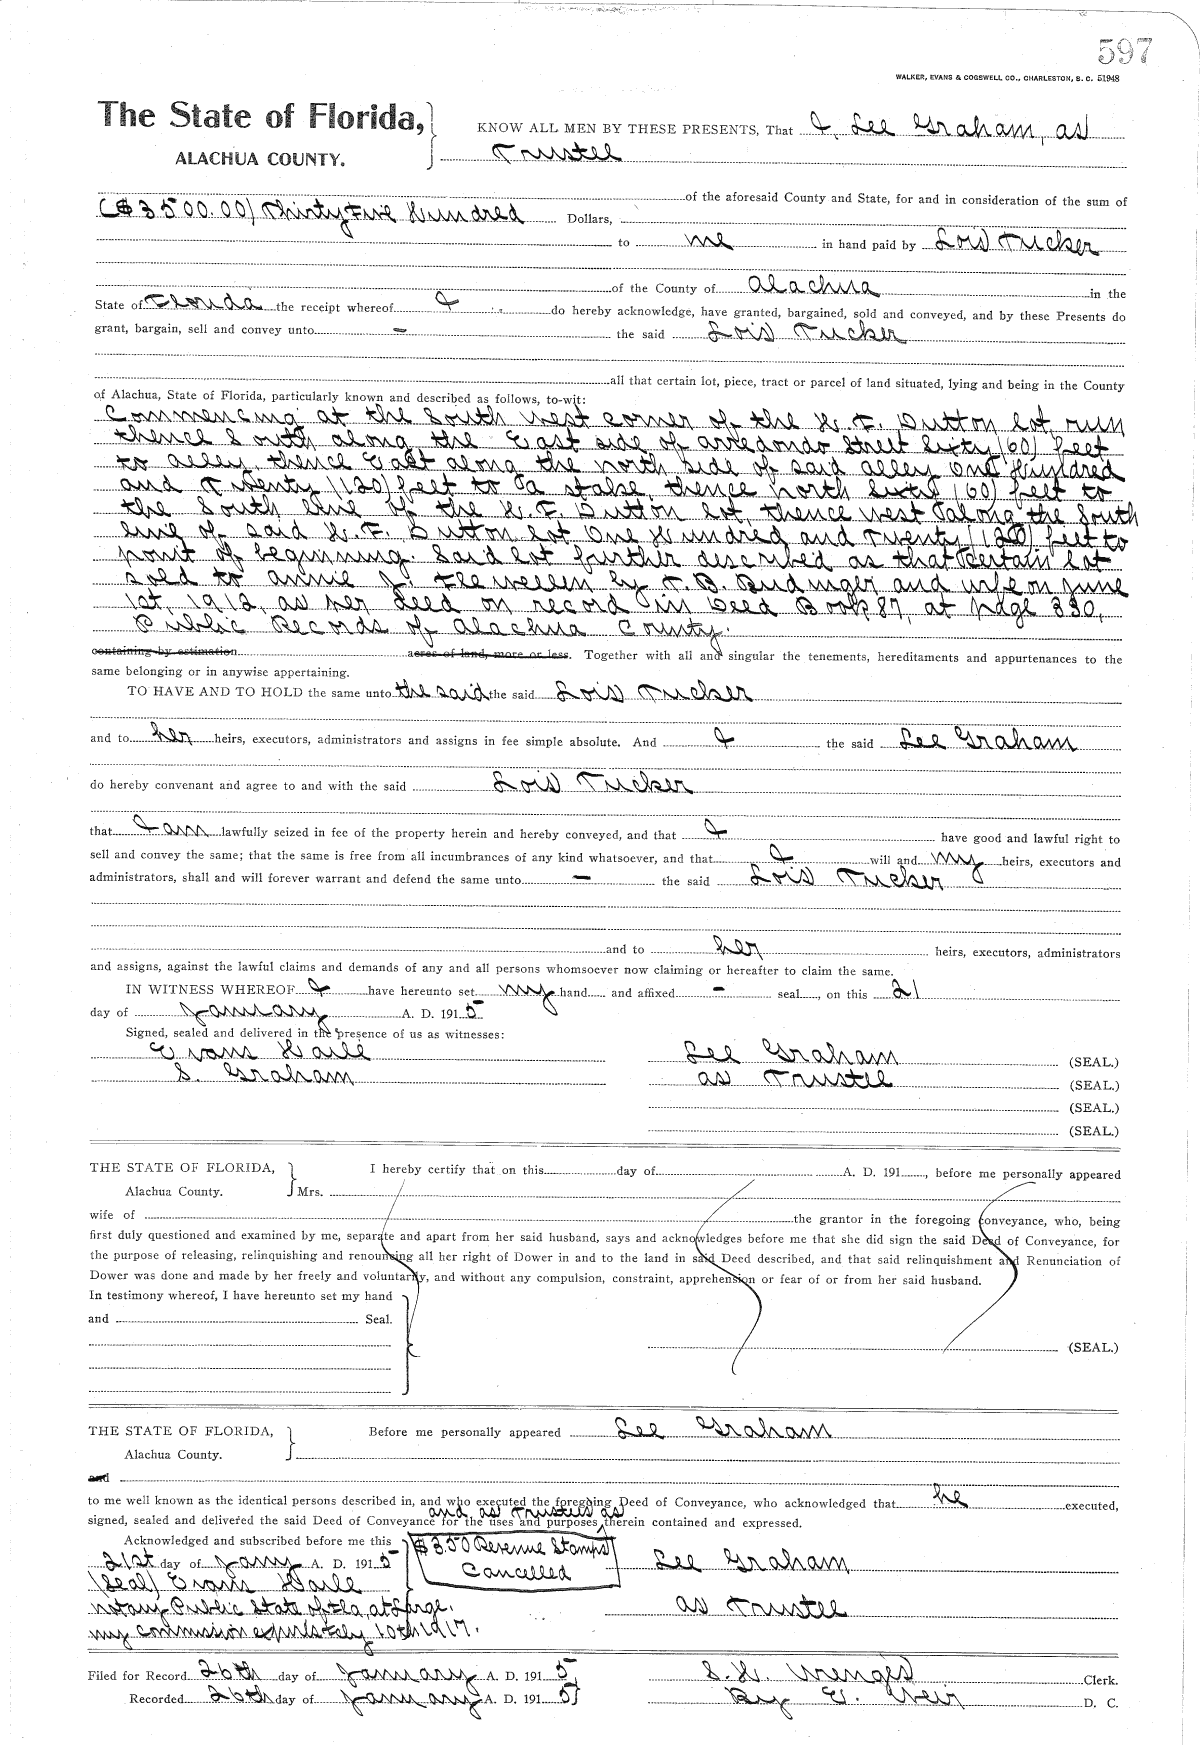 597
WALKER, EVANS & COGSWELL CO., CHARLESTON, S. C. 51948
The State of Florida,
ALACHUA COUNTY.
KNOW ALL MEN BY THESE PRESENTS, That I, Lee Graham, as
Trustee
of the aforesaid County and State, for and in consideration of the sum of
($3500.00) Thirty Five Hundred Dollars,
to me in hand paid by Lois Tucker
of the County of Alachua in the
State of Florida the receipt whereof I do hereby acknowledge, have granted, bargained, sold and conveyed, and by these Presents do
grant, bargain, sell and convey unto - the said Lois Tucker
all that certain lot, piece, tract or parcel of land situated, lying and being in the County
of Alachua, State of Florida, particularly known and described as follows, to-wit:
Commencing at the South west corner of the H. F. Dutton lot, run
thence South along the East side of arredondo Street Sixty (60) feet
to alley, thence East along the north side of said alley One Hundred
and Twenty (120) feet to a stake, thence north Sixty (60) feet to
the South line of the H. F. Dutton lot, thence west along the South
line of said H. F. Dutton lot One Hundred and Twenty (120) feet to
point of beginning. Said lot further described as that certain lot
sold to annie J. Flewellen by T. B. Budinger and wife on June
1st, 1912, as her deed on record in Deed Book 87, at page 330,
Public Records of Alachua County.
containing by estimation acres of land, more or less. Together with all and singular the tenements, hereditaments and appurtenances to the
same belonging or in anywise appertaining.
TO HAVE AND TO HOLD the same unto the said the said Lois Tucker
and to her heirs, executors, administrators and assigns in fee simple absolute. And I the said Lee Graham
do hereby convenant and agree to and with the said Lois Tucker
that I am lawfully seized in fee of the property herein and hereby conveyed, and that I have good and lawful right to
sell and convey the same; that the same is free from all incumbrances of any kind whatsoever, and that I will and my heirs, executors and
administrators, shall and will forever warrant and defend the same unto - the said Lois Tucker
and to her heirs, executors, administrators
and assigns, against the lawful claims and demands of any and all persons whomsoever now claiming or hereafter to claim the same.
IN WITNESS WHEREOF I have hereunto set my hand and affixed - seal, on this 21
day of January A. D. 1915
Signed, sealed and delivered in the presence of us as witnesses:
Evans Haile Lee Graham (SEAL.)
S. Graham as Trustee (SEAL.)
(SEAL.)
(SEAL.)
THE STATE OF FLORIDA, I hereby certify that on this day of A. D. 191, before me personally appeared
Alachua County. Mrs.
wife of the grantor in the foregoing conveyance, who, being
first duly questioned and examined by me, separate and apart from her said husband, says and acknowledges before me that she did sign the said Deed of Conveyance, for
the purpose of releasing, relinquishing and renouncing all her right of Dower in and to the land in said Deed described, and that said relinquishment and Renunciation of
Dower was done and made by her freely and voluntarily, and without any compulsion, constraint, apprehension or fear of or from her said husband.
In testimony whereof, I have hereunto set my hand
and Seal.
(SEAL.)
THE STATE OF FLORIDA, Before me personally appeared Lee Graham
Alachua County.
and
to me well known as the identical persons described in, and who executed the foregoing Deed of Conveyance, who acknowledged that he executed,
and as Trustees as
signed, sealed and delivered the said Deed of Conveyance for the uses and purposes therein contained and expressed.
Acknowledged and subscribed before me this
21st day of Jany A. D. 1915
$3.50 Revenue Stamps
Cancelled
Lee Graham
(Seal) Evans Haile
notary Public State of Fla, at Large. as Trustee
my commission expires 10th 1917.
Filed for Record 26th day of January A. D. 1915 S. H. Wienges Clerk.
Recorded 26th day of January A. D. 1915 By E. Weir D. C.